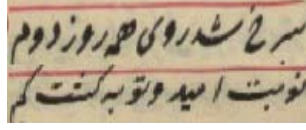 سرخ شد روی همه روز دوم
نوبت امید و توبه گشت گم